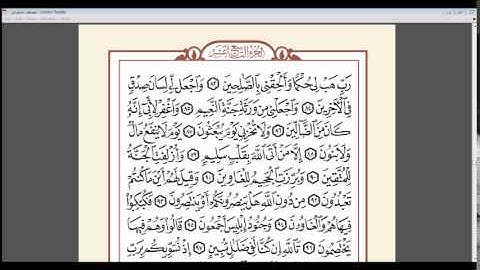 الجزء التاسع عشر
رَبِّ هَبْ لِي حُكْمًا وَأَلْحِقْنِي بِالصَّالِحِينَ ٨٣ وَاجْعَل لِّي لِسَانَ صِدْقٍ
فِي الْآخِرِينَ ٨٤ وَاجْعَلْنِي مِن وَرَثَةِ جَنَّةِ النَّعِيمِ ٨٥ وَاغْفِرْ لِأَبِي إِنَّهُ
كَانَ مِنَ الضَّالِّينَ ٨٦ وَلَا تُخْزِنِي يَوْمَ يُبْعَثُونَ ٨٧ يَوْمَ لَا يَنفَعُ مَالٌ
وَلَا بَنُونَ ٨٨ إِلَّا مَنْ أَتَى اللَّهَ بِقَلْبٍ سَلِيمٍ ٨٩ وَأُزْلِفَتِ الْجَنَّةُ
لِلْمُتَّقِينَ ٩٠ وَبُرِّزَتِ الْجَحِيمُ لِلْغَاوِينَ ٩١ وَقِيلَ لَهُمْ أَيْنَ مَا كُنتُمْ
تَعْبُدُونَ ٩٢ مِن دُونِ اللَّهِ هَلْ يَنصُرُونَكُمْ أَوْ يَنتَصِرُونَ ٩٣ فَكُبْكِبُوا
فِيهَا هُمْ وَالْغَاوُونَ ٩٤ وَجُنُودُ إِبْلِيسَ أَجْمَعُونَ ٩٥ قَالُوا وَهُمْ فِيهَا
يَخْتَصِمُونَ ٩٦ تَاللَّهِ إِن كُنَّا لَفِي ضَلَالٍ مُّبِينٍ ٩٧ إِذْ نُسَوِّيكُم بِرَبِّ